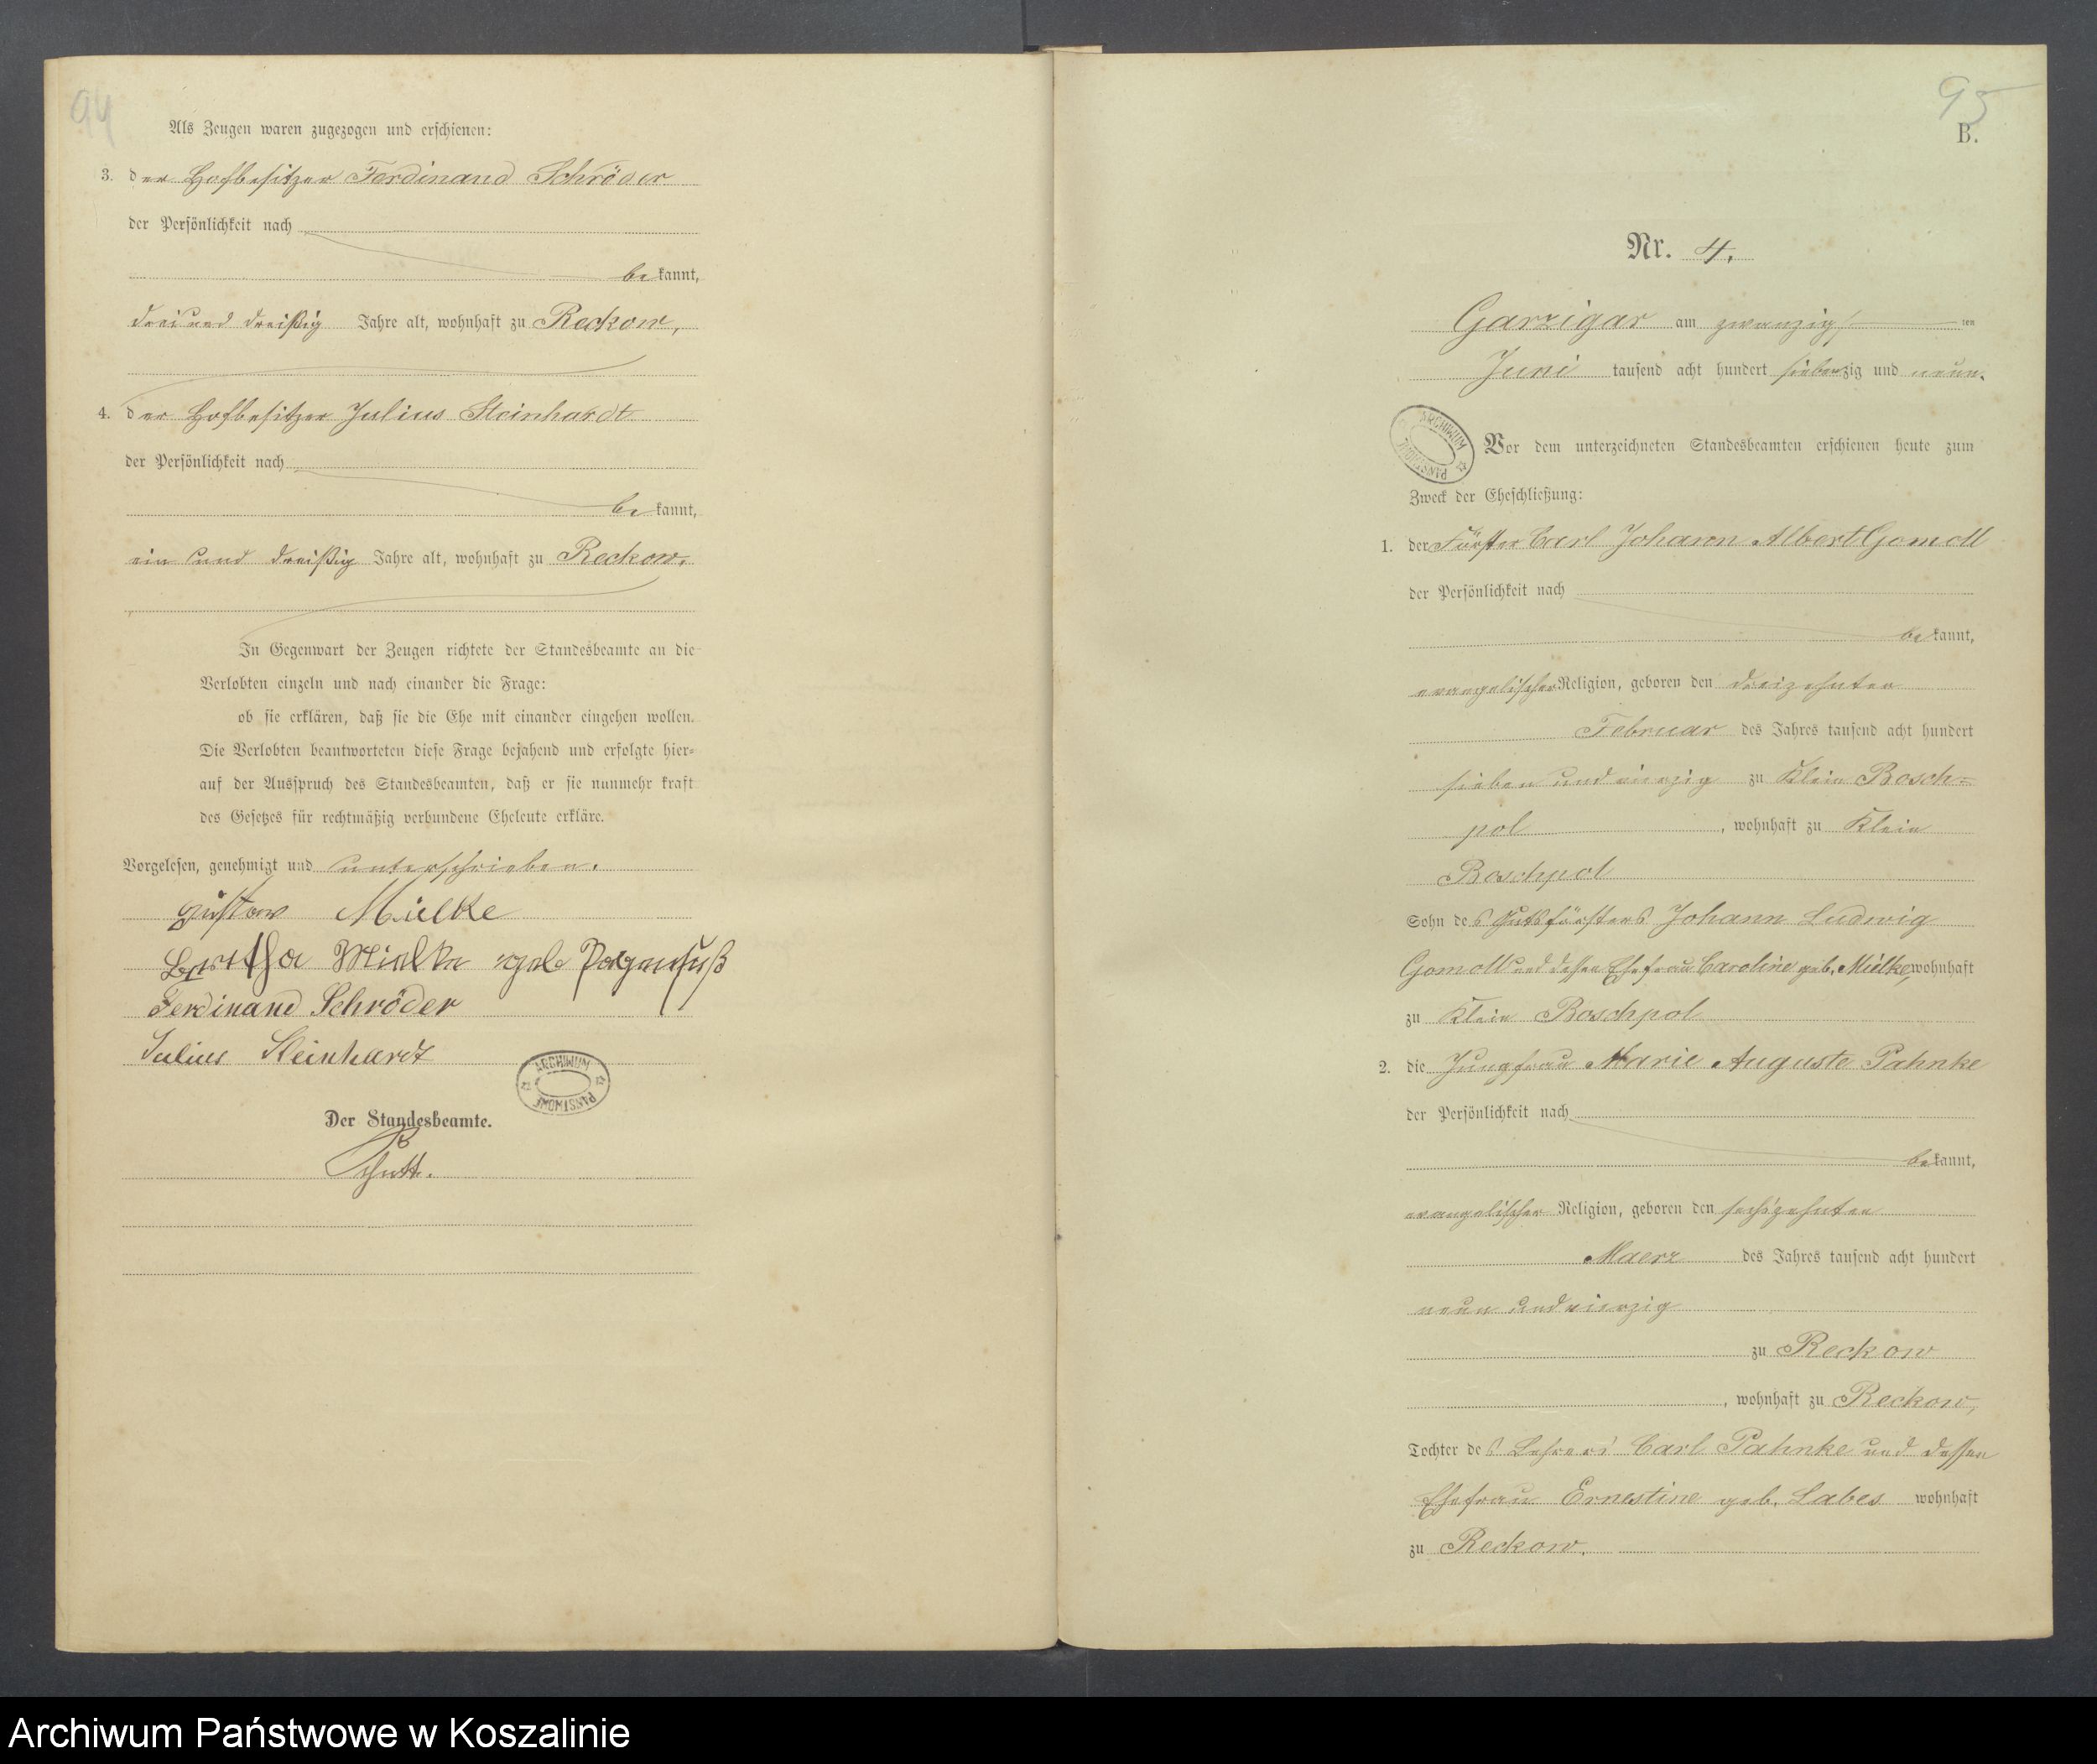 94
Als Zeugen waren zugezogen und erschienen:
3. der Hofbesitzer Ferdinand Schröder
der Persönlichkeit nach
bekannt,
drei und dreißig Jahre alt, wohnhaft zu Reckow,
4. der Hofbesitzer Julius Steinhardt
der Persönlichkeit nach
bekannt,
ein und dreißig Jahre alt, wohnhaft zu Reckow.
In Gegenwart der Zeugen richtete der Standesbeamte an die
Verlobten einzeln und nach einander die Frage:
ob sie erklären, daß sie die Ehe mit einander eingehen wollen.
Die Verlobten beantworteten diese Frage bejahend und erfolgte hier-
auf der Ausspruch des Standesbeamten, daß er sie nunmehr kraft
des Gesetzes für rechtmäßig verbundene Eheleute erkläre.
Vorgelesen, genehmigt und unterschrieben.
Gustav Mielke
Bertha Mielke geb Pagenfuß
Ferdinand Schröder
Julius Steinhardt
ARCHIWUM PAŃSTWOWE
Der Standesbeamte.
95
B.
Nr. 4.
Garzigar am zwanzigsten
Juni tausend acht hundert siebenzig und neun.
ARCHIWUM PAŃSTWOWE
Vor dem unterzeichneten Standesbeamten erschienen heute zum
Zweck der Eheschließung:
1. der Förster Carl Johann Albert Gomoll
der Persönlichkeit nach
bekannt,
evangelischer Religion, geboren den dreizehnten
Februar des Jahres tausend acht hundert
sieben und vierzig zu Klein Bosch-
pol, wohnhaft zu Klein
Boschpol
Sohn des Gutsförsters Johann Ludwig
Gomoll und dessen Ehefrau Caroline geb. Mielke, wohnhaft
zu Klein Boschpol
2. die Jungfrau Marie Auguste Pahnke
der Persönlichkeit nach
bekannt,
evangelischer Religion, geboren den sechszehnten
Maerz des Jahres tausend acht hundert
neun und vierzig
zu Reckow
, wohnhaft zu Reckow,
Tochter des Lehrers Carl Pahnke und dessen
Ehefrau Ernestine geb. Labes wohnhaft
zu Reckow.
Archiwum Państwowe w Koszalinie